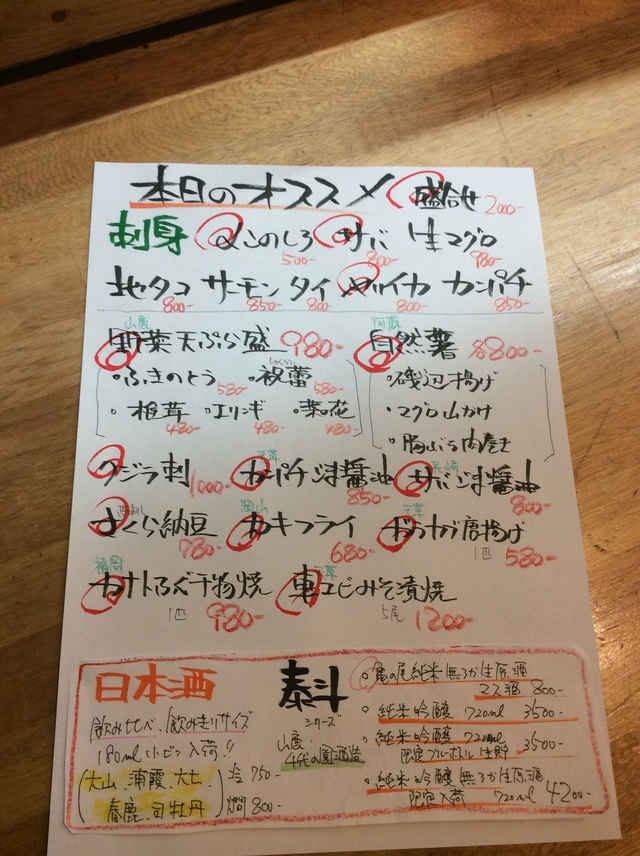 本日のオススメ 盛合せ 2000-
刺身 このしろ 500- サバ 800- 生マグロ 980-
地タコ 800- サーモン 850- タイ 800- ヤリイカ 800- カンパチ 850-
山鹿
野菜天ぷら盛 980-
・ふきのとう 580- ・祝蕾 しゅくらい 580-
・椎茸 480- ・エリンギ 480- ・菜の花 480-
自然薯 各800-
・磯辺揚げ
・マグロ山かけ
・豚バラ肉巻き
クジラ刺 1000- カンパチごま醤油 850- 長崎 サバごま醤油 800-
さくら納豆 780- 岡山 カキフライ 680- 天草 唐揚げ 1匹 580-
福岡 カナトふぐ干物焼 1匹 980- 天草 車エビみそ漬焼 5尾 1200-
日本酒
飲み比べ、飲みきりサイズ
180ml小ビン入荷!!
(大山、浦霞、大七、春鹿、司牡丹)
冷 750-
燗 800-
泰斗
シリーズ
山鹿
千代の園酒造
・亀の尾純米無ろか生原酒
マス酒 800-
・純米吟醸 720ml 3500-
・純米吟醸 720ml
限定ブルーボトル生貯 3500-
・純米吟醸無ろか生原酒
限定入荷 720ml 4200-